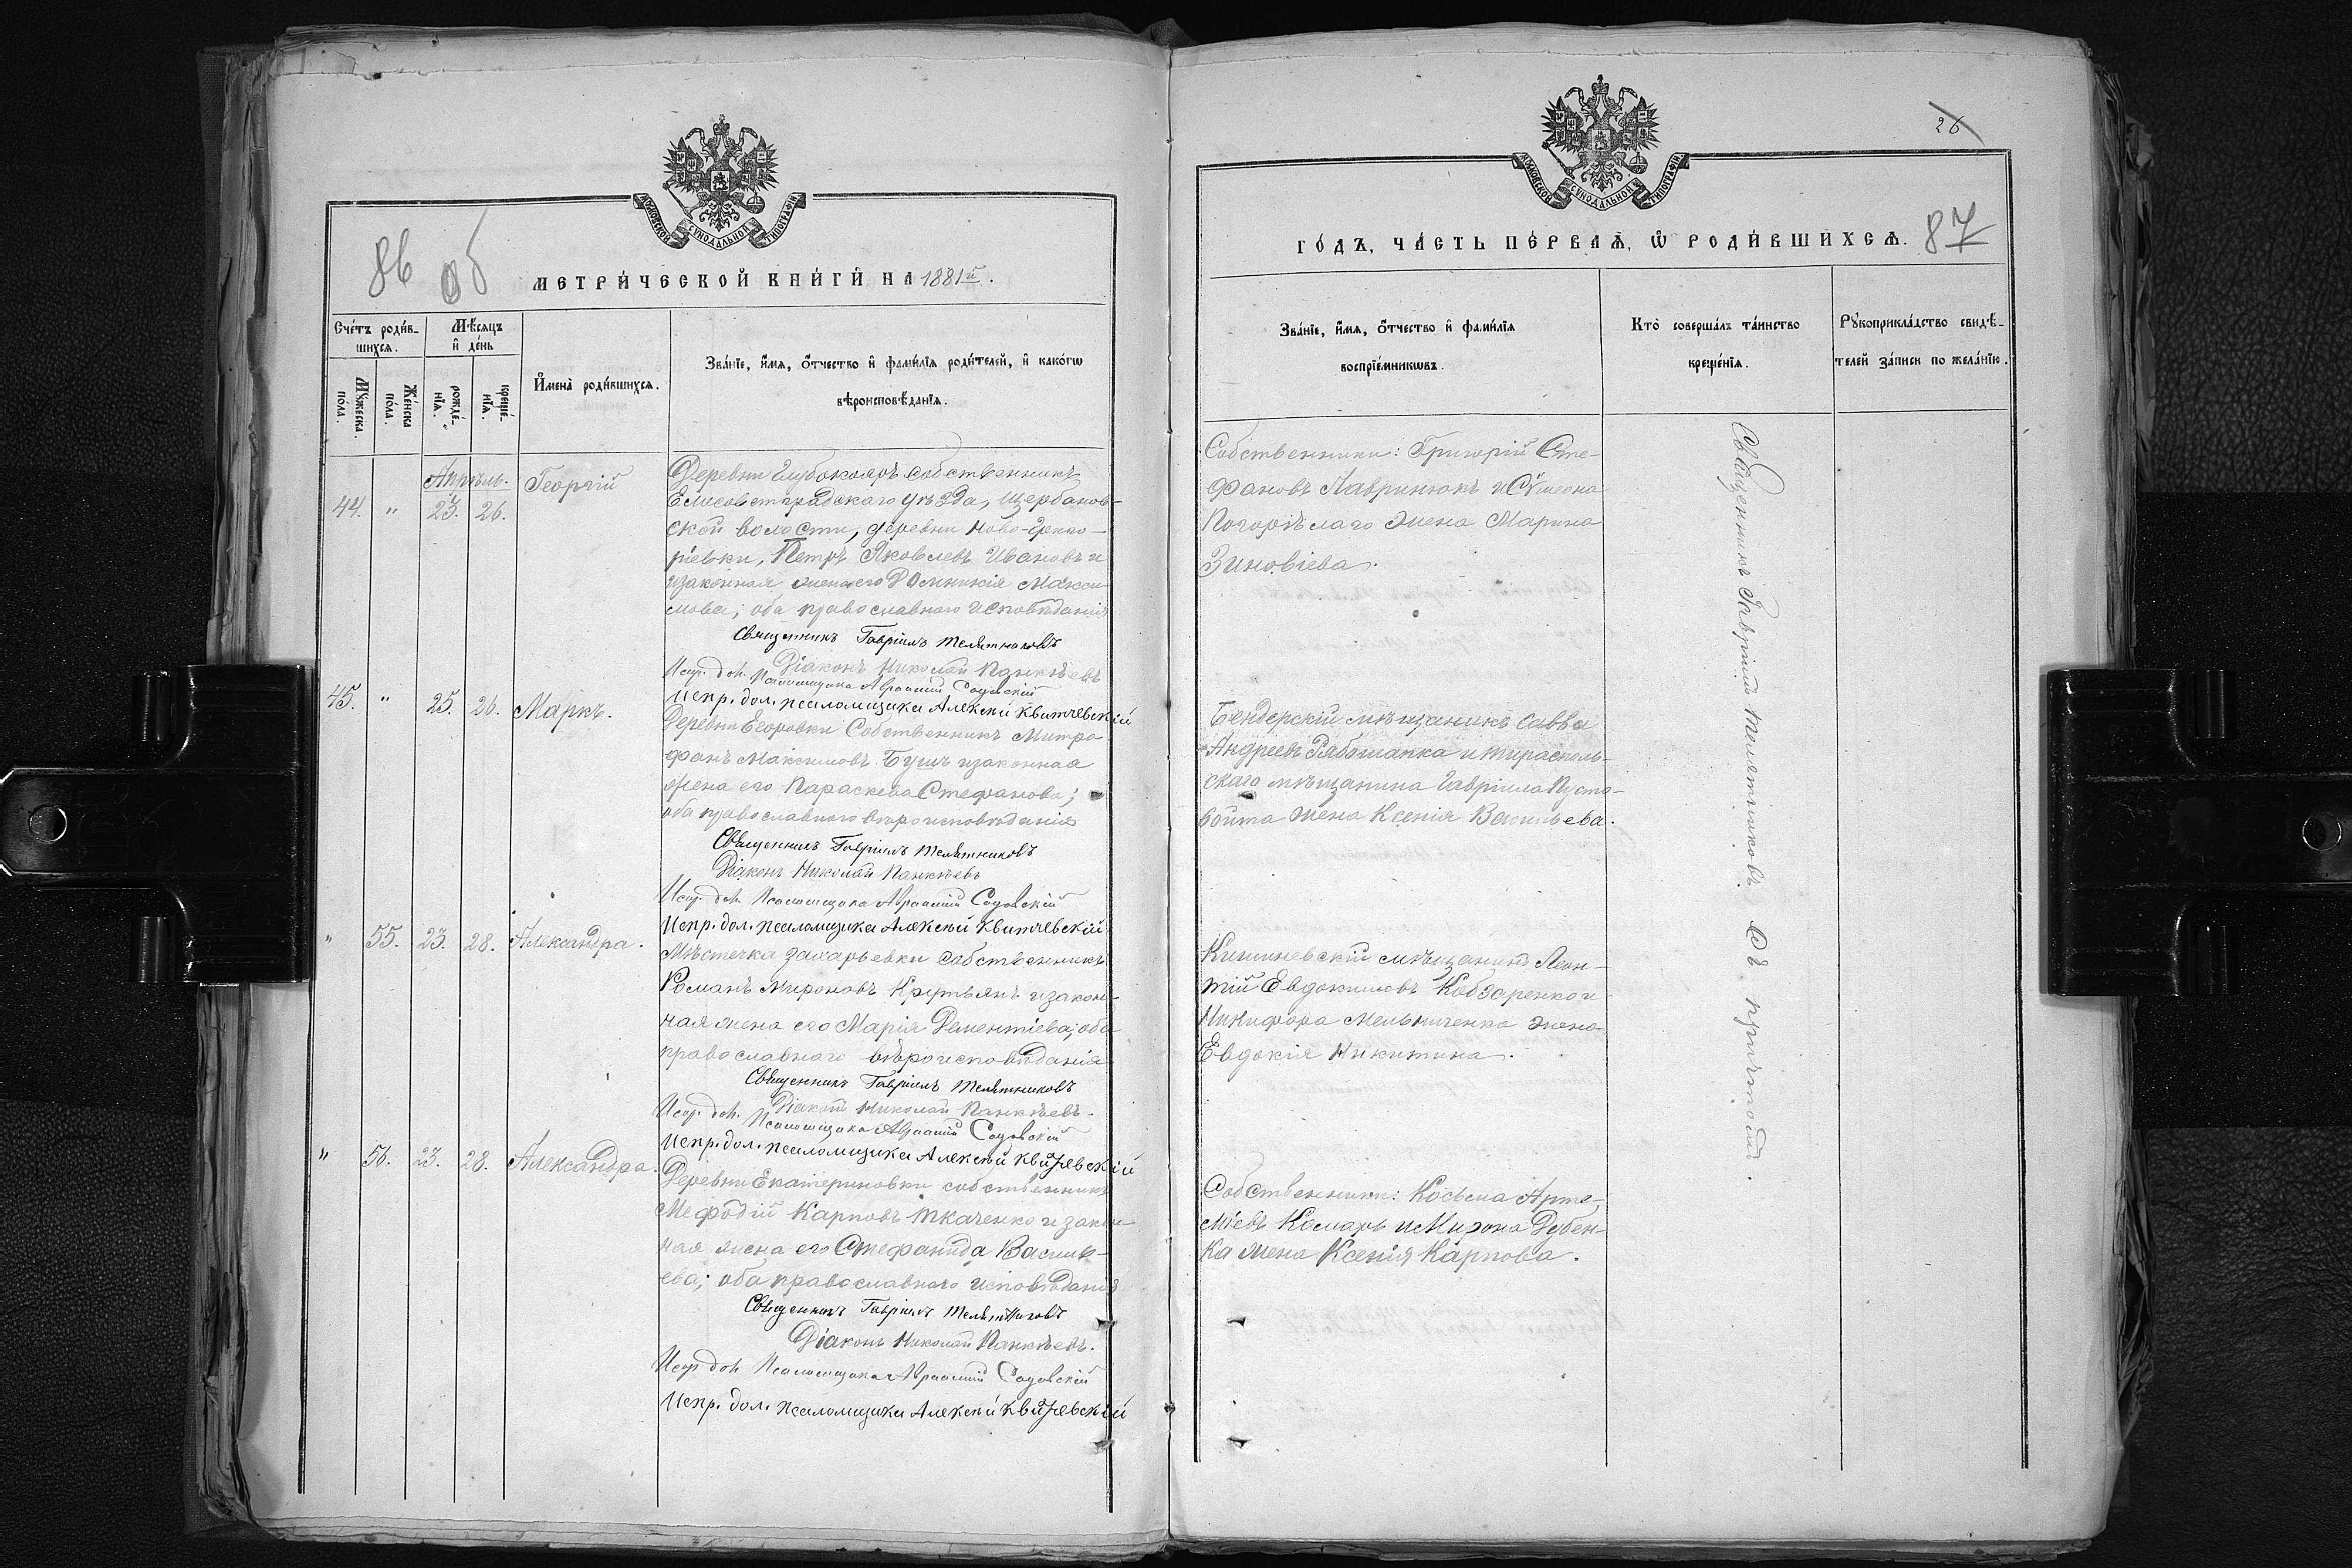 МОСКОВСКОЙ СУНОДАЛЬНОЙ ТИПОГРАФІИ
86 об
МЕТРИ́ЧЕСКОЙ КНИ́ГИ НА 1881й.
Сче́тъ роди́в-
шихся.
Мѣ́сяцъ
и де́нь
Мꙋ́жеска
по́ла.
Же́нска
по́ла.
рожде́-
нїя.
креще́-
нїя.
И҆мена̀ роди́вшихся.
Зва́нїе, и҆́мя, ѻ҆́тчество и҆ фами́лїя роди́телей, и҆ како́гѡ
вѣроисповѣ́данїя.
Апрѣль.
44. " 23. 26. Георгій
Деревни Глубокояръ собственникъ
Елисаветградскаго уѣзда, Щербанов-
ской волости, деревни Ново-Григо-
ріевки, Петръ Яковлевъ Ивановъ и
законная жена его Домникія Макси-
мова; оба православнаго исповѣданія
Священникъ Гавріилъ Телятниковъ
Діаконъ Николай Панкѣевъ
Испр. дол. Псаломщика Авраамій Садовскій
Испр. дол. псаломщика Алексѣй Квитчевскій
45. " 25. 26. Маркъ.
Деревни Егоровки Собственникъ Митро-
фанъ Максимовъ Бушъ и законная
жена его Параскева Стефанова;
оба православнаго вѣроисповѣданія
Священникъ Гавріилъ Телятниковъ
Діаконъ Николай Панкѣевъ
Испр. дол. Псаломщика Авраамій Садовскій
Испр. дол. псаломщика Алексѣй Квитчевскій
" 55. 23. 28. Александра.
Мѣстечка Захарьевки собственникъ
Романъ Мироновъ Крутьянъ и закон-
ная жена его Марія Дементіева; оба
православнаго вѣроисповѣданія
Священникъ Гавріилъ Телятниковъ
Діаконъ Николай Панкѣевъ.
Испр. дол. Псаломщика Авраамій Садовскій
Испр. дол. псаломщика Алексѣй Квитчевскій
" 56. 23. 28. Александра.
Деревни Екатериновки собственникъ
Мефодій Карповъ Ткаченко и закон-
ная жена его Стефанида Василь-
ева; оба православнаго исповѣданія
Священникъ Гавріилъ Телятниковъ
Діаконъ Николай Панкѣевъ.
Испр. дол. Псаломщика Авраамій Садовскій
Испр. дол. псаломщика Алексѣй Квитчевскій
26
МОСКОВСКОЙ СУНОДАЛЬНОЙ ТИПОГРАФІИ
ГО́ДЪ, ЧА́СТЬ ПЕ́РВАЯ, Ѡ҆ РОДИ́ВШИХСЯ. 87
Зва́нїе, и҆́мя, ѻ҆́тчество и҆ фами́лїя
воспрїе́мникѡвъ.
Кто̀ соверша́лъ та́инство
креще́нїя.
Рꙋкоприкла́дство свидѣ́-
телей за́писи по жела́нїю.
Собственники: Григорій Сте-
фановъ Лавринюкъ и Сѵмеона
Погорѣлаго жена Марина
Зиновіева.
Бендерскій мѣщанинъ Савва
Андреевъ Рябошапка и тирасполь-
скаго мѣщанина Гавріила Пусто-
войта жена Ксенія Васильева.
Кишиневскій мѣщанинъ Леон-
тій Евдокимовъ Кобзаренко и
Никифора Мельниченка жена
Евдокія Никитина.
Собственники: Косьма Арте-
міевъ Комаръ и Мирона Дубен-
ка жена Ксенія Карпова.
Священникъ Гавріилъ Телятниковъ съ причтомъ.